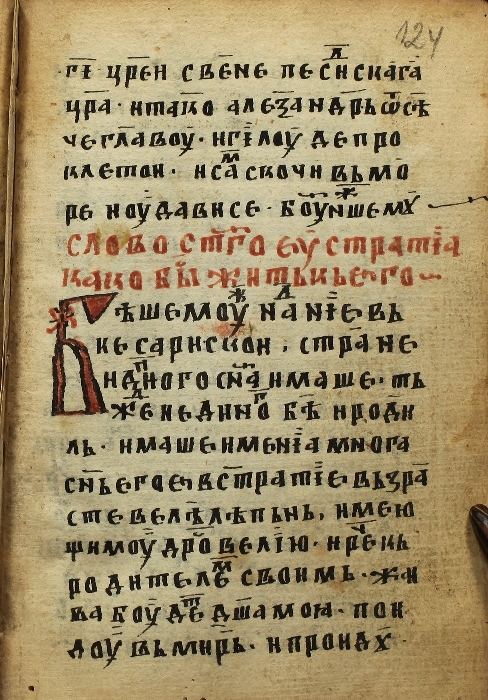 124
гі҃ цр҃ен свѣ҃не песн҃скага
цр҃а · итако алеѯандрь ѿсѣ
че главоу · нгі҃лоу де про
клетои · и са҃м скочи вь мо
ре и оудави се · боу н҃шемꙋ
слово ст҃го еѵстратіа
како бы҃ житькьего
Бѣшемоу наніевь
кесариискои . стра҃не
ид҃ного сн҃а имаше · ть
же неди҃но г бѣ и роди
ль · имаше именіа многа
сн҃ь его еѵстратіе вьзра
сте велѣлѣпьнь . имею
щимоу др҃о велію · и ре҃чь
родителем своимь · жи
ва боуде дш҃а моꙗ · пои
доу вь мирь · и проидꙋ